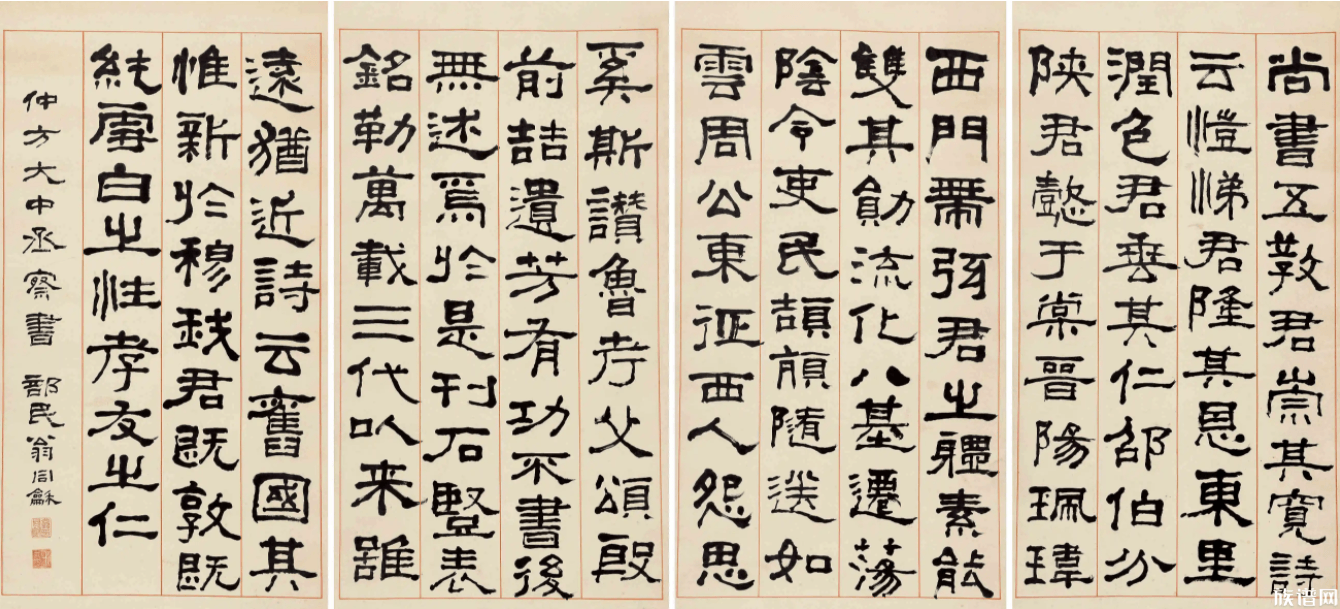 尚書五教君崇其寬詩
云愷悌君隆其恩東里
潤色君垂其仁邵伯分
陝君懿于棠晉陽珮瑋
西門帶弦君之體素能
雙其勛流化八基遷蕩
陰令吏民頡頏隨送如
雲周公東征西人怨思
奚斯讚魯考父頌殷
前喆遺芳有功不書後
無述焉於是刊石豎表
銘勒萬載三代以来雖
遠猶近詩云舊國其
惟新於穆我君既敦既
純雪白之性孝友之仁
仲方大中丞察書 部民翁同龢
族谱网